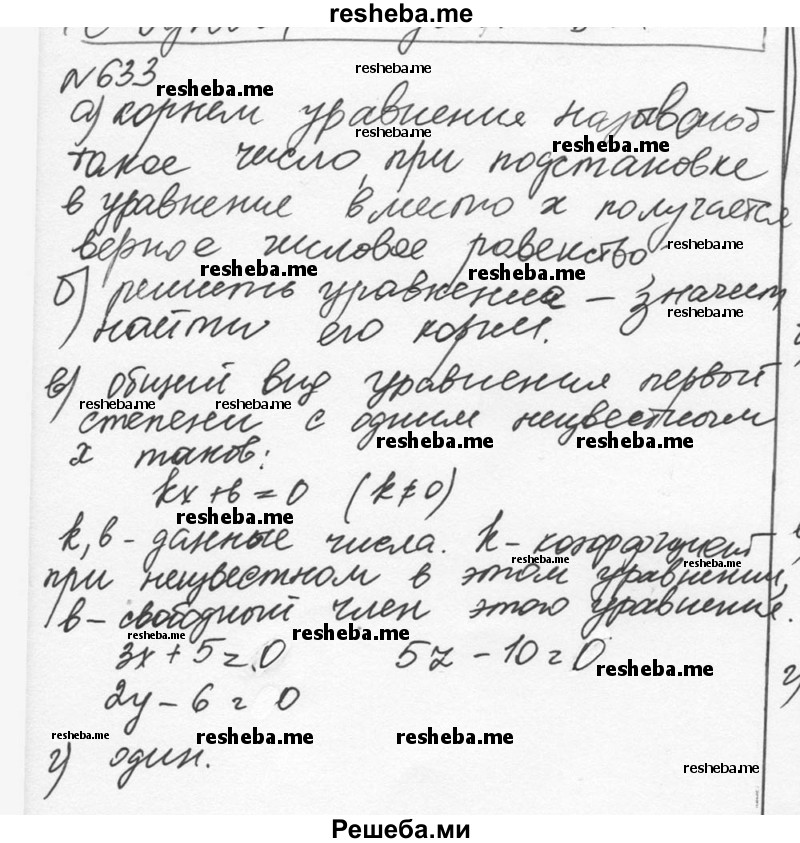 resheba.me
№633
resheba.me
resheba.me
а) корнем уравнения называют
resheba.me
resheba.me
такое число, при подстановке
в уравнение вместо x получается
верное числовое равенство
resheba.me
resheba.me
resheba.me
б) решить уравнение – значит
resheba.me
найти его корни.
в) общий вид уравнения первой
resheba.me
resheba.me
степени с одним неизвестным
resheba.me
resheba.me
x таков:
kx + b = 0 (k ≠ 0)
resheba.me
k, b – данные числа. k – коэффициент
resheba.me
resheba.me
при неизвестном в этом уравнении,
b – свободный член этого уравнения.
resheba.me
resheba.me
3x + 5 = 0 5z – 10 = 0
resheba.me
2y – 6 = 0
resheba.me
resheba.me
resheba.me
г) один.
resheba.me
Решеба.ми